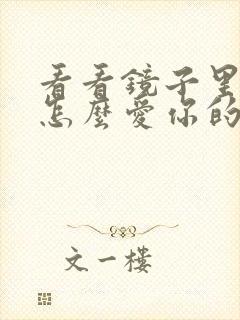 看看鏡子里
怎麼愛你的
文一樓